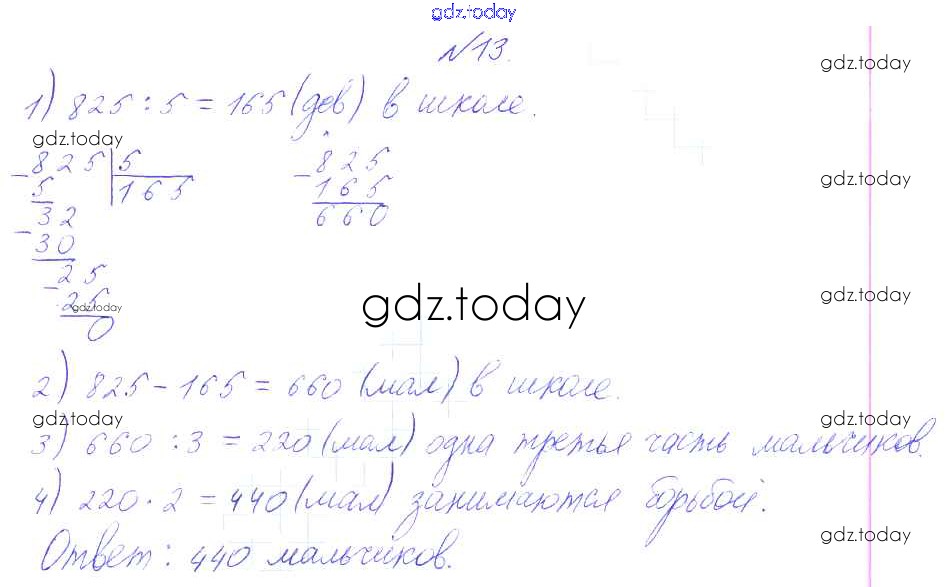 gdz.today
№13.
gdz.today
1) 825 : 5 = 165 (дев) в школе.
gdz.today
- 825 | 5
5 | 165
32
- 30
25
- 25
gdz.today
0
- 825
165
660
gdz.today
gdz.today
gdz.today
2) 825 - 165 = 660 (мал) в школе.
gdz.today
gdz.today
3) 660 : 3 = 220 (мал) одна третья часть мальчиков.
4) 220 · 2 = 440 (мал) занимаются борьбой.
gdz.today
Ответ: 440 мальчиков.